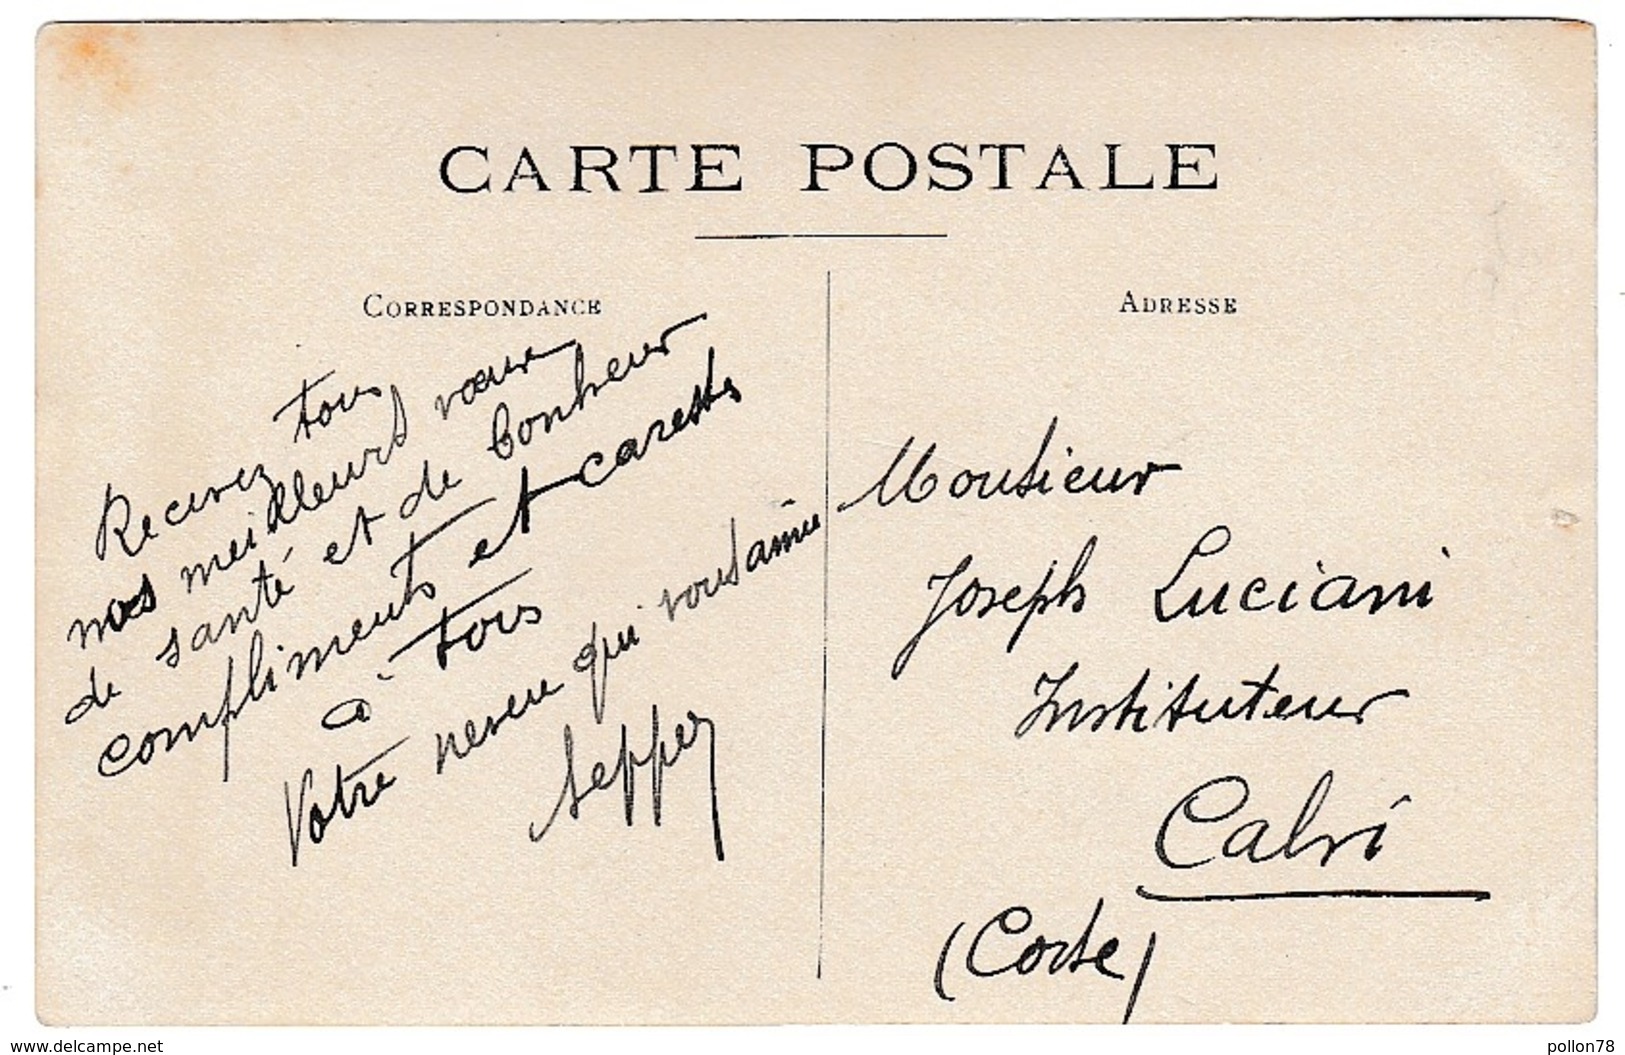 CARTE POSTALE
CORRESPONDANCE
ADRESSE
Recevez tous
mes meilleurs vœux
de santé et de bonheur
compliments et caresses
à tous
Votre neveu qui vous aime
Monsieur
Joseph Luciani
Instituteur
Calvi
(Corse)
www.delcampe.net
pollon78